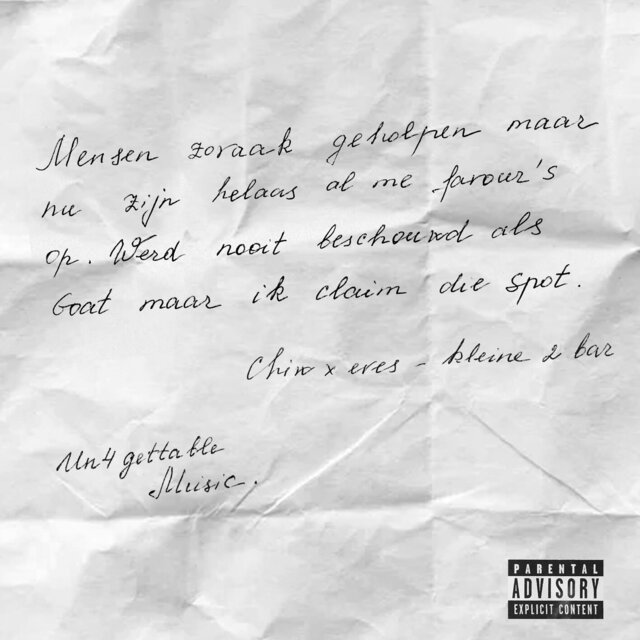 Mensen zovaak geholpen maar
nu zijn helaas al me favour's
op. Werd nooit beschouwd als
Goat maar ik claim die spot.
Chiw x eves - kleine 2 bar
Un4gettable
Music.
PARENTAL
ADVISORY
EXPLICIT CONTENT